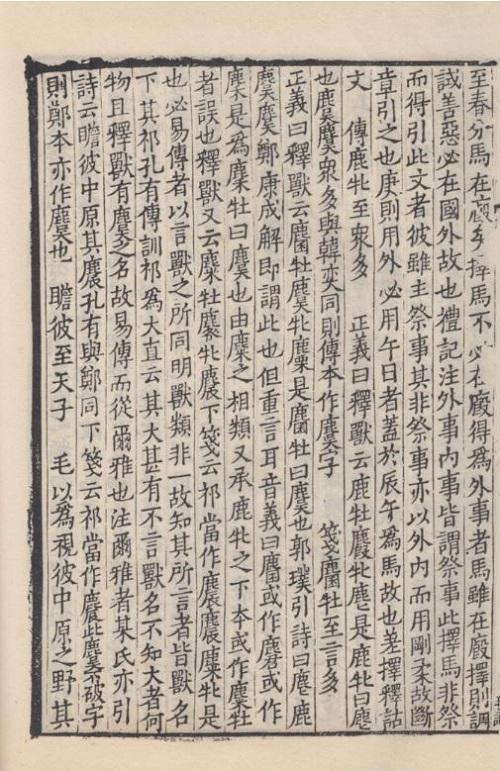 至春分馬在廄矣擇馬不必在廄得為外事者馬雖在廄擇則調
試善惡必在國外故也禮記注外事內事皆謂祭事此擇馬非祭
而得引此文者彼雖主祭事其非祭事亦以外內而用剛柔故斷
章引之也庚則用外必用午日者蓋於辰午為馬故也差擇釋詁
文　傳鹿牝至衆多　正義曰釋獸云鹿牡麚牝麀是鹿牝曰麀
也麌麌衆多與韓奕同則傳本作麌字　箋麕牡至言多
正義曰釋獸云麕牡麌牝麜是麕牡曰麌也郭璞引詩曰麀鹿
麌麌鄭康成解即謂此也但重言耳音義曰麕或作麏或作
麇是為麇牡曰麌也由麇之相類又承鹿牝之下本或作麇牡
者誤也釋獸又云麋牡麔牝麎下箋云祁當作麎麎麋牝是
也必易傳者以言獸之所同明獸類非一故知其所言者皆獸名
下其祁孔有傳訓祁為大直云其大甚有不言獸名不知大者何
物且釋獸有麎之名故易傳而從爾雅也注爾雅者某氏亦引
詩云瞻彼中原其麎孔有與鄭同下箋云祁當作麎此麌不破字
則鄭本亦作麌也　瞻彼至天子　毛以為視彼中原之野其